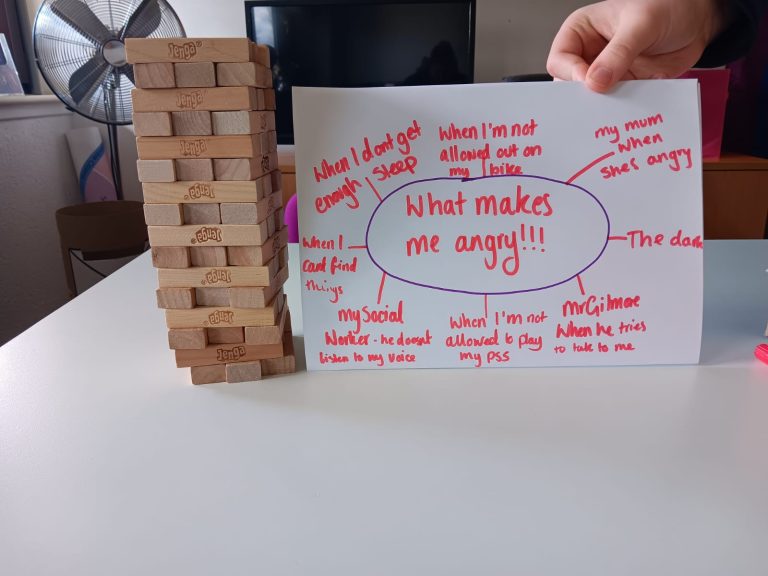 Jenga
Jenga
Jenga
Jenga
Jenga
Jenga
Jenga
Jenga
What makes
me angry!!!
When I dont get
enough sleep
When I'm not
allowed out on
my bike
my mum
when
shes angry
The dark
MrGilmore
When he tries
to talk to me
When I'm not
allowed to play
my ps5
my Social
Worker - he doesnt
listen to my voice
When I
cant find
things